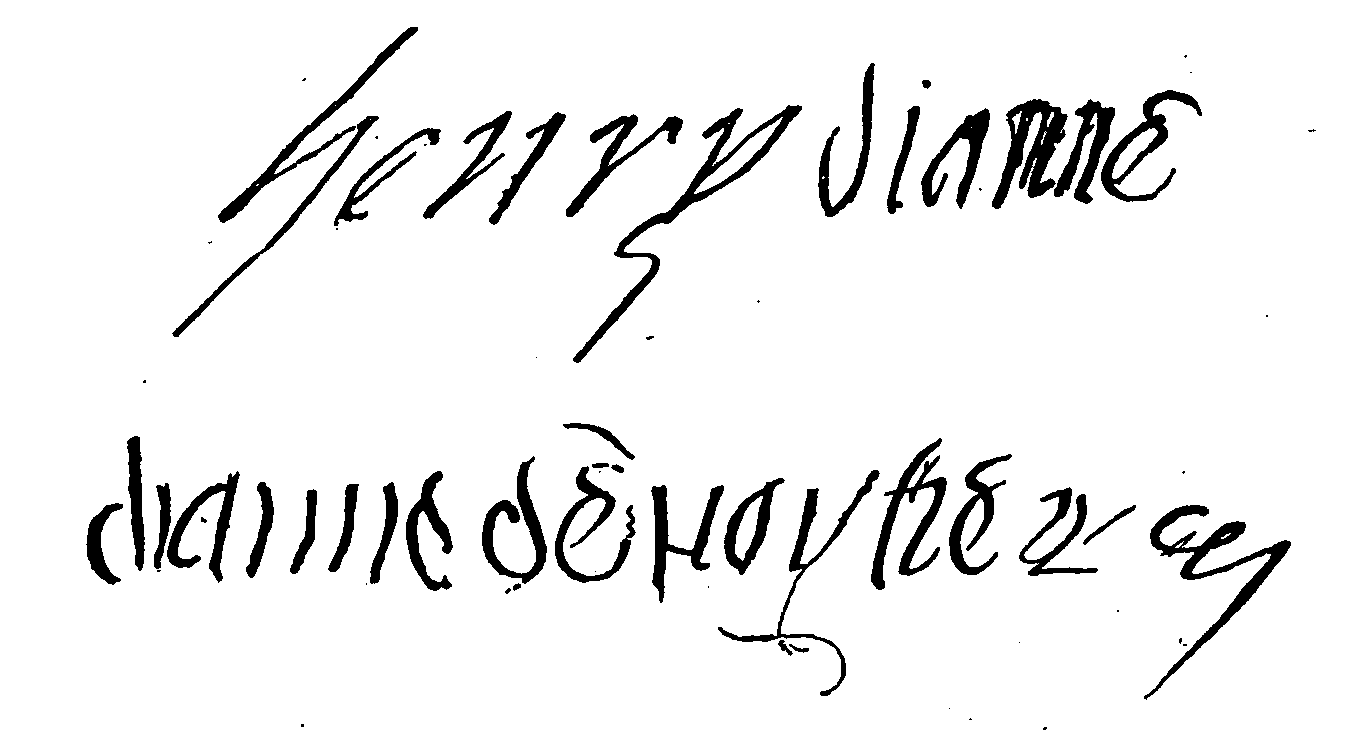 henry dianne
dianne de poytiers